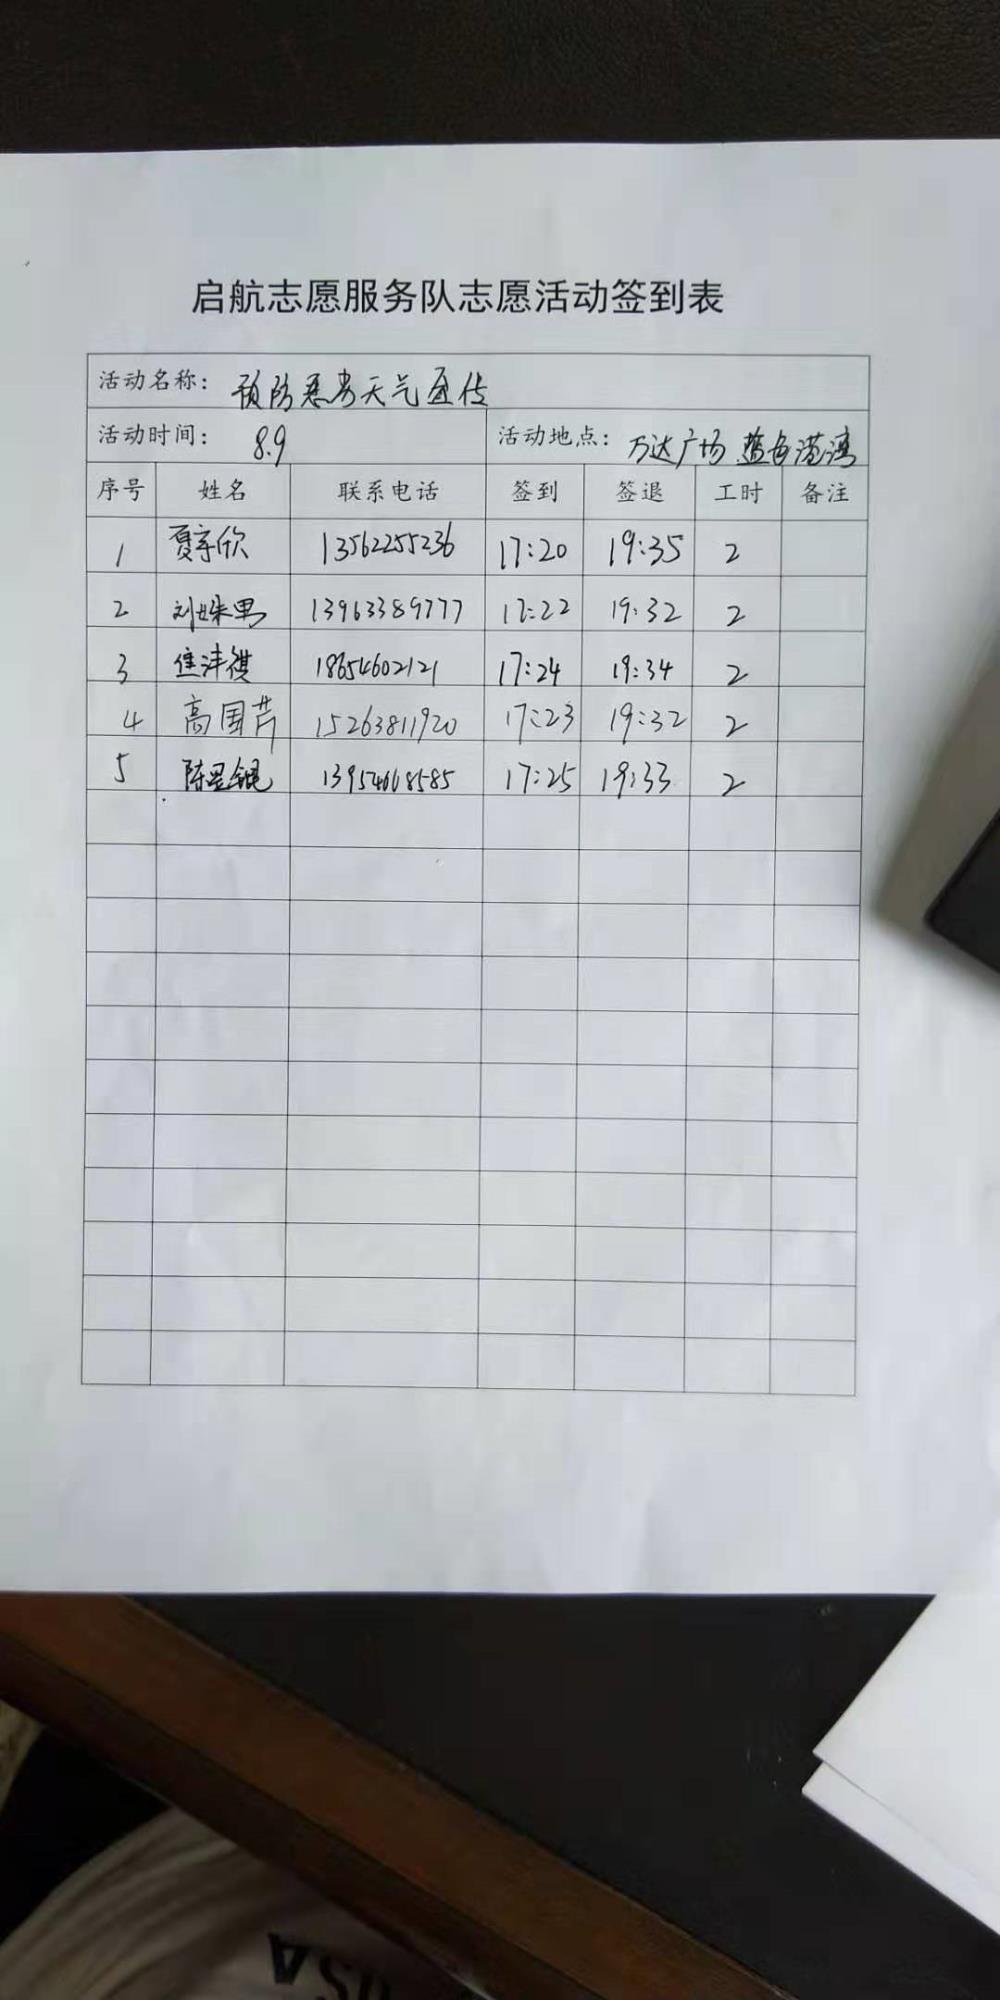 启航志愿服务队志愿活动签到表
活动名称： 预防恶劣天气宣传
活动时间： 8.9 活动地点： 万达广场 蓝色港湾
序号 姓名 联系电话 签到 签退 工时 备注
1 夏宇欣 13562255236 17:20 19:35 2
2 刘姝男 13963389777 17:22 19:32 2
3 18654602121 17:24 19:34 2
4 高国芹 15263811920 17:23 19:32 2
5 13954668585 17:25 19:33 2
USA